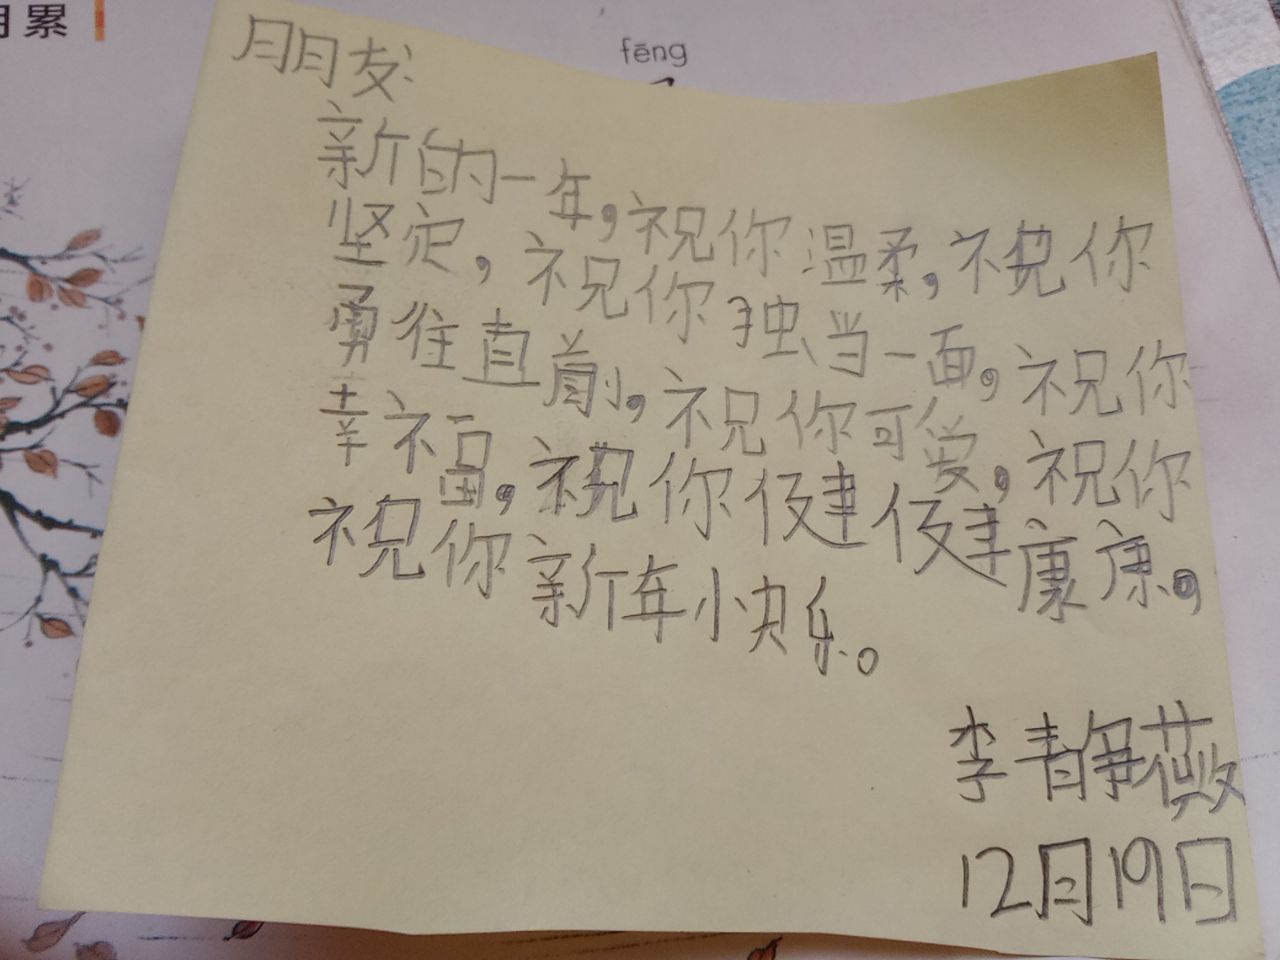 月累
fēng
朋友:
新的一年,祝你温柔,祝你
坚定,祝你独当一面,祝你
勇往直前,祝你可爱,祝你
幸福,祝你健健康康,
祝你新年小快乐。
李静薇
12月19日